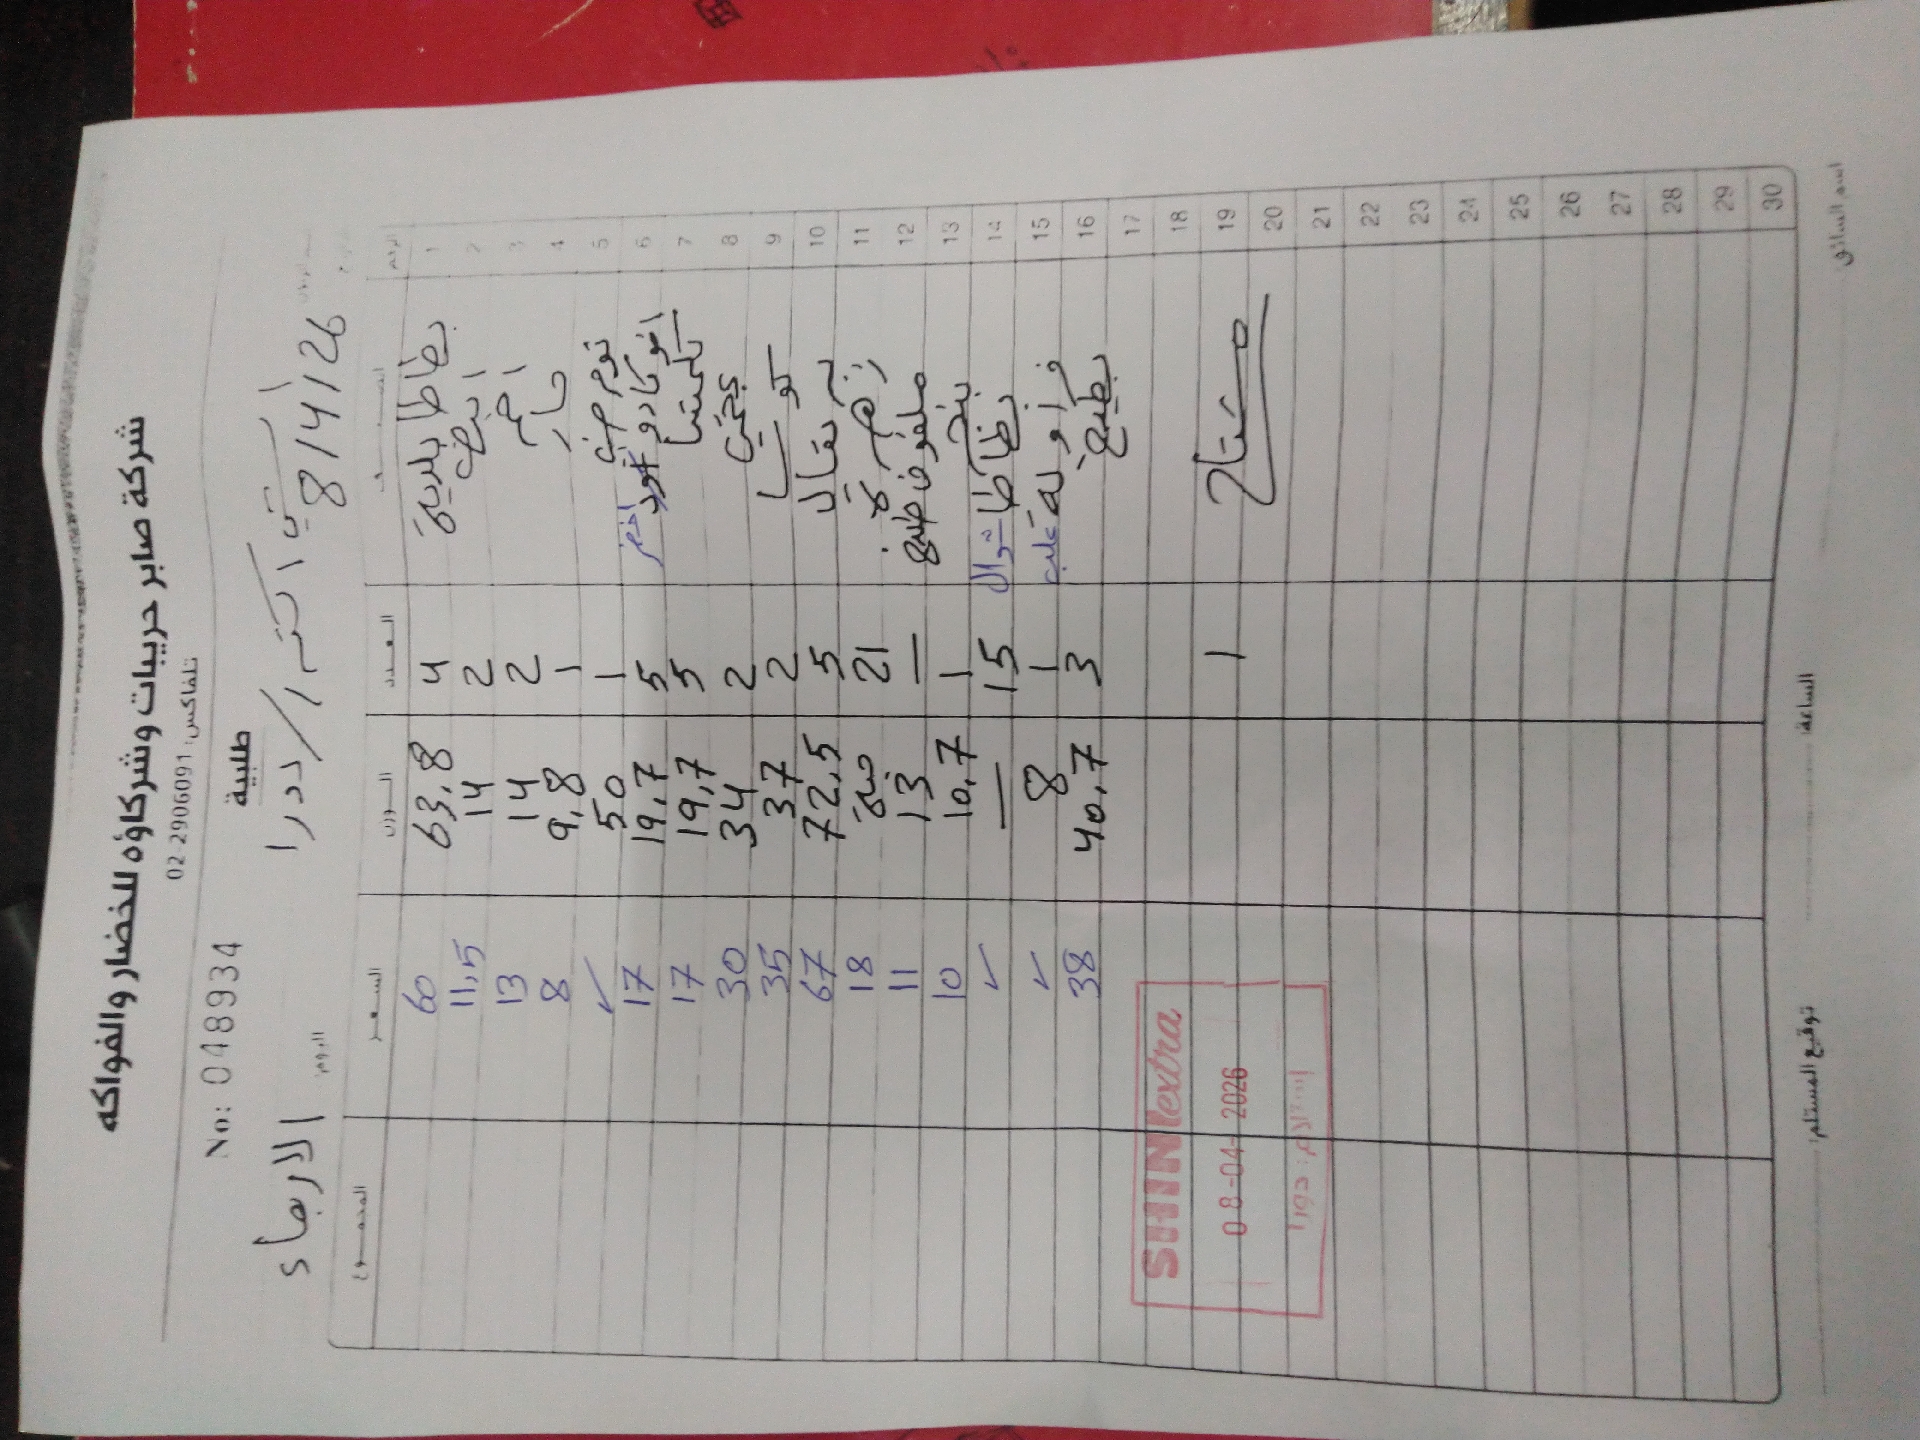 شركة صابر حريبات وشركاؤه للخضار والفواكه
تلفاكس: 02-2906091
طلبية
No: 048934
شني اكسترا / دورا
8/4/26
اليوم: الاربعاء
الرقم الصنف العدد الوزن السعر المجموع
1 بطاطا بلدية 4 63,8 60
2 ابيض 2 14 11,5
3 احمر 2 14 13
4 حار 1 9,8 8
5 توم صيني 1 50 ✓
6 افوكادو اخضر 5 19,7 17
7 كلمنتينا 5 19,7 17
8 2 34 30
9 كوسا 2 37 35
10 برتقال 5 72,5 67
11 زهرة 21 حبة 18
12 ملفوف طبيخ — 13 11
13 بنجر 1 10,7 10
14 بطاطا شوال 15 — ✓
15 فراولة علب 1 8 ✓
16 بطيخ 3 40,7 38
17
18
19 مشتاح 1
20
21
22
23
24
25
26
27
28
29
30
SHINI extra
08-04-2026
إستلام: دورا
اسم السائق
الساعة
توقيع المستلم: